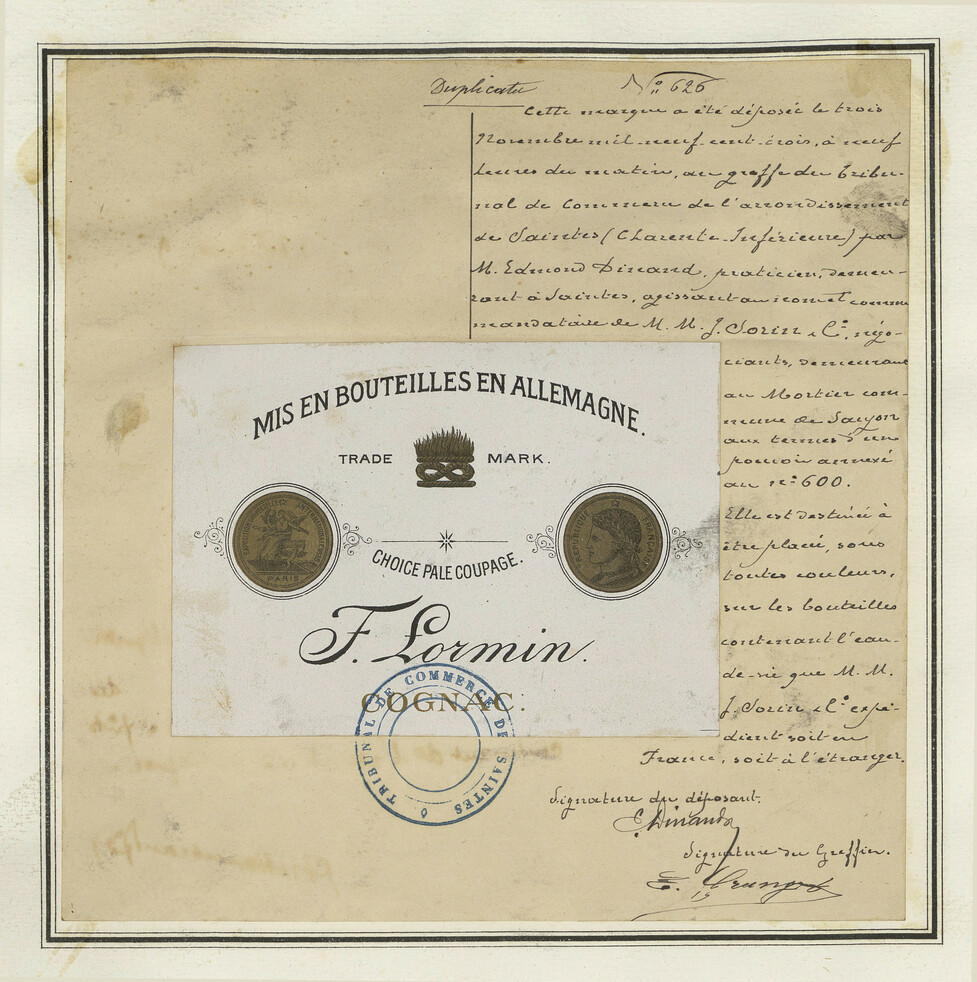 Duplicata
N° 626
Cette marque a été déposée le trois
Novembre mil-neuf-cent-trois, à neuf
heures du matin, au greffe du Tribu-
nal de Commerce de l'arrondissement
de Saintes (Charente-Inférieure) par
M. Edmond Dinand, praticien, demeu-
rant à Saintes, agissant au nom et comme
mandataire de M. M. J. Sorin & Cie, négo-
ciants, demeurant
au Mortier com-
mune de
aux termes d'un
pouvoir annexé
au n° 600.
Elle est destinée à
être placée, sous
toutes couleurs,
sur les bouteilles
contenant l'eau-
de-vie que M. M.
J. Sorin & Cie expé-
dient soit en
France, soit à l'étranger.
MIS EN BOUTEILLES EN ALLEMAGNE.
TRADE MARK.
PARIS
RÉPUBLIQUE FRANÇAISE
CHOICE PALE COUPAGE.
F. Lormin.
COGNAC.
TRIBUNAL DE COMMERCE DE SAINTES
Signature du déposant.
E. Dinand
Signature du Greffier.